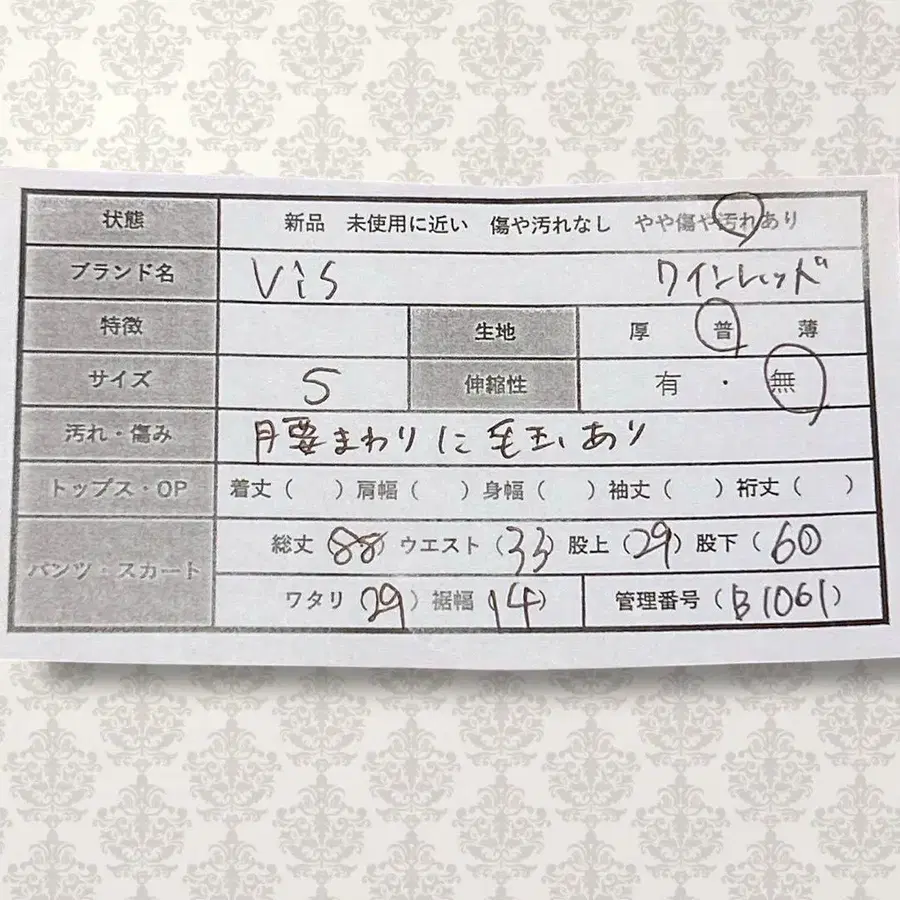 状態 新品 未使用に近い 傷や汚れなし やや傷や汚れあり
ブランド名 ViS ワインレッド
特徴 生地 厚 普 薄
サイズ S 伸縮性 有 ・ 無
汚れ・傷み 腰まわりに毛玉あり
トップス・OP 着丈( )肩幅( )身幅( )袖丈( )裄丈( )
パンツ・スカート 総丈(88)ウエスト(33)股上(29)股下(60)
ワタリ(29)裾幅(14) 管理番号(B1061)